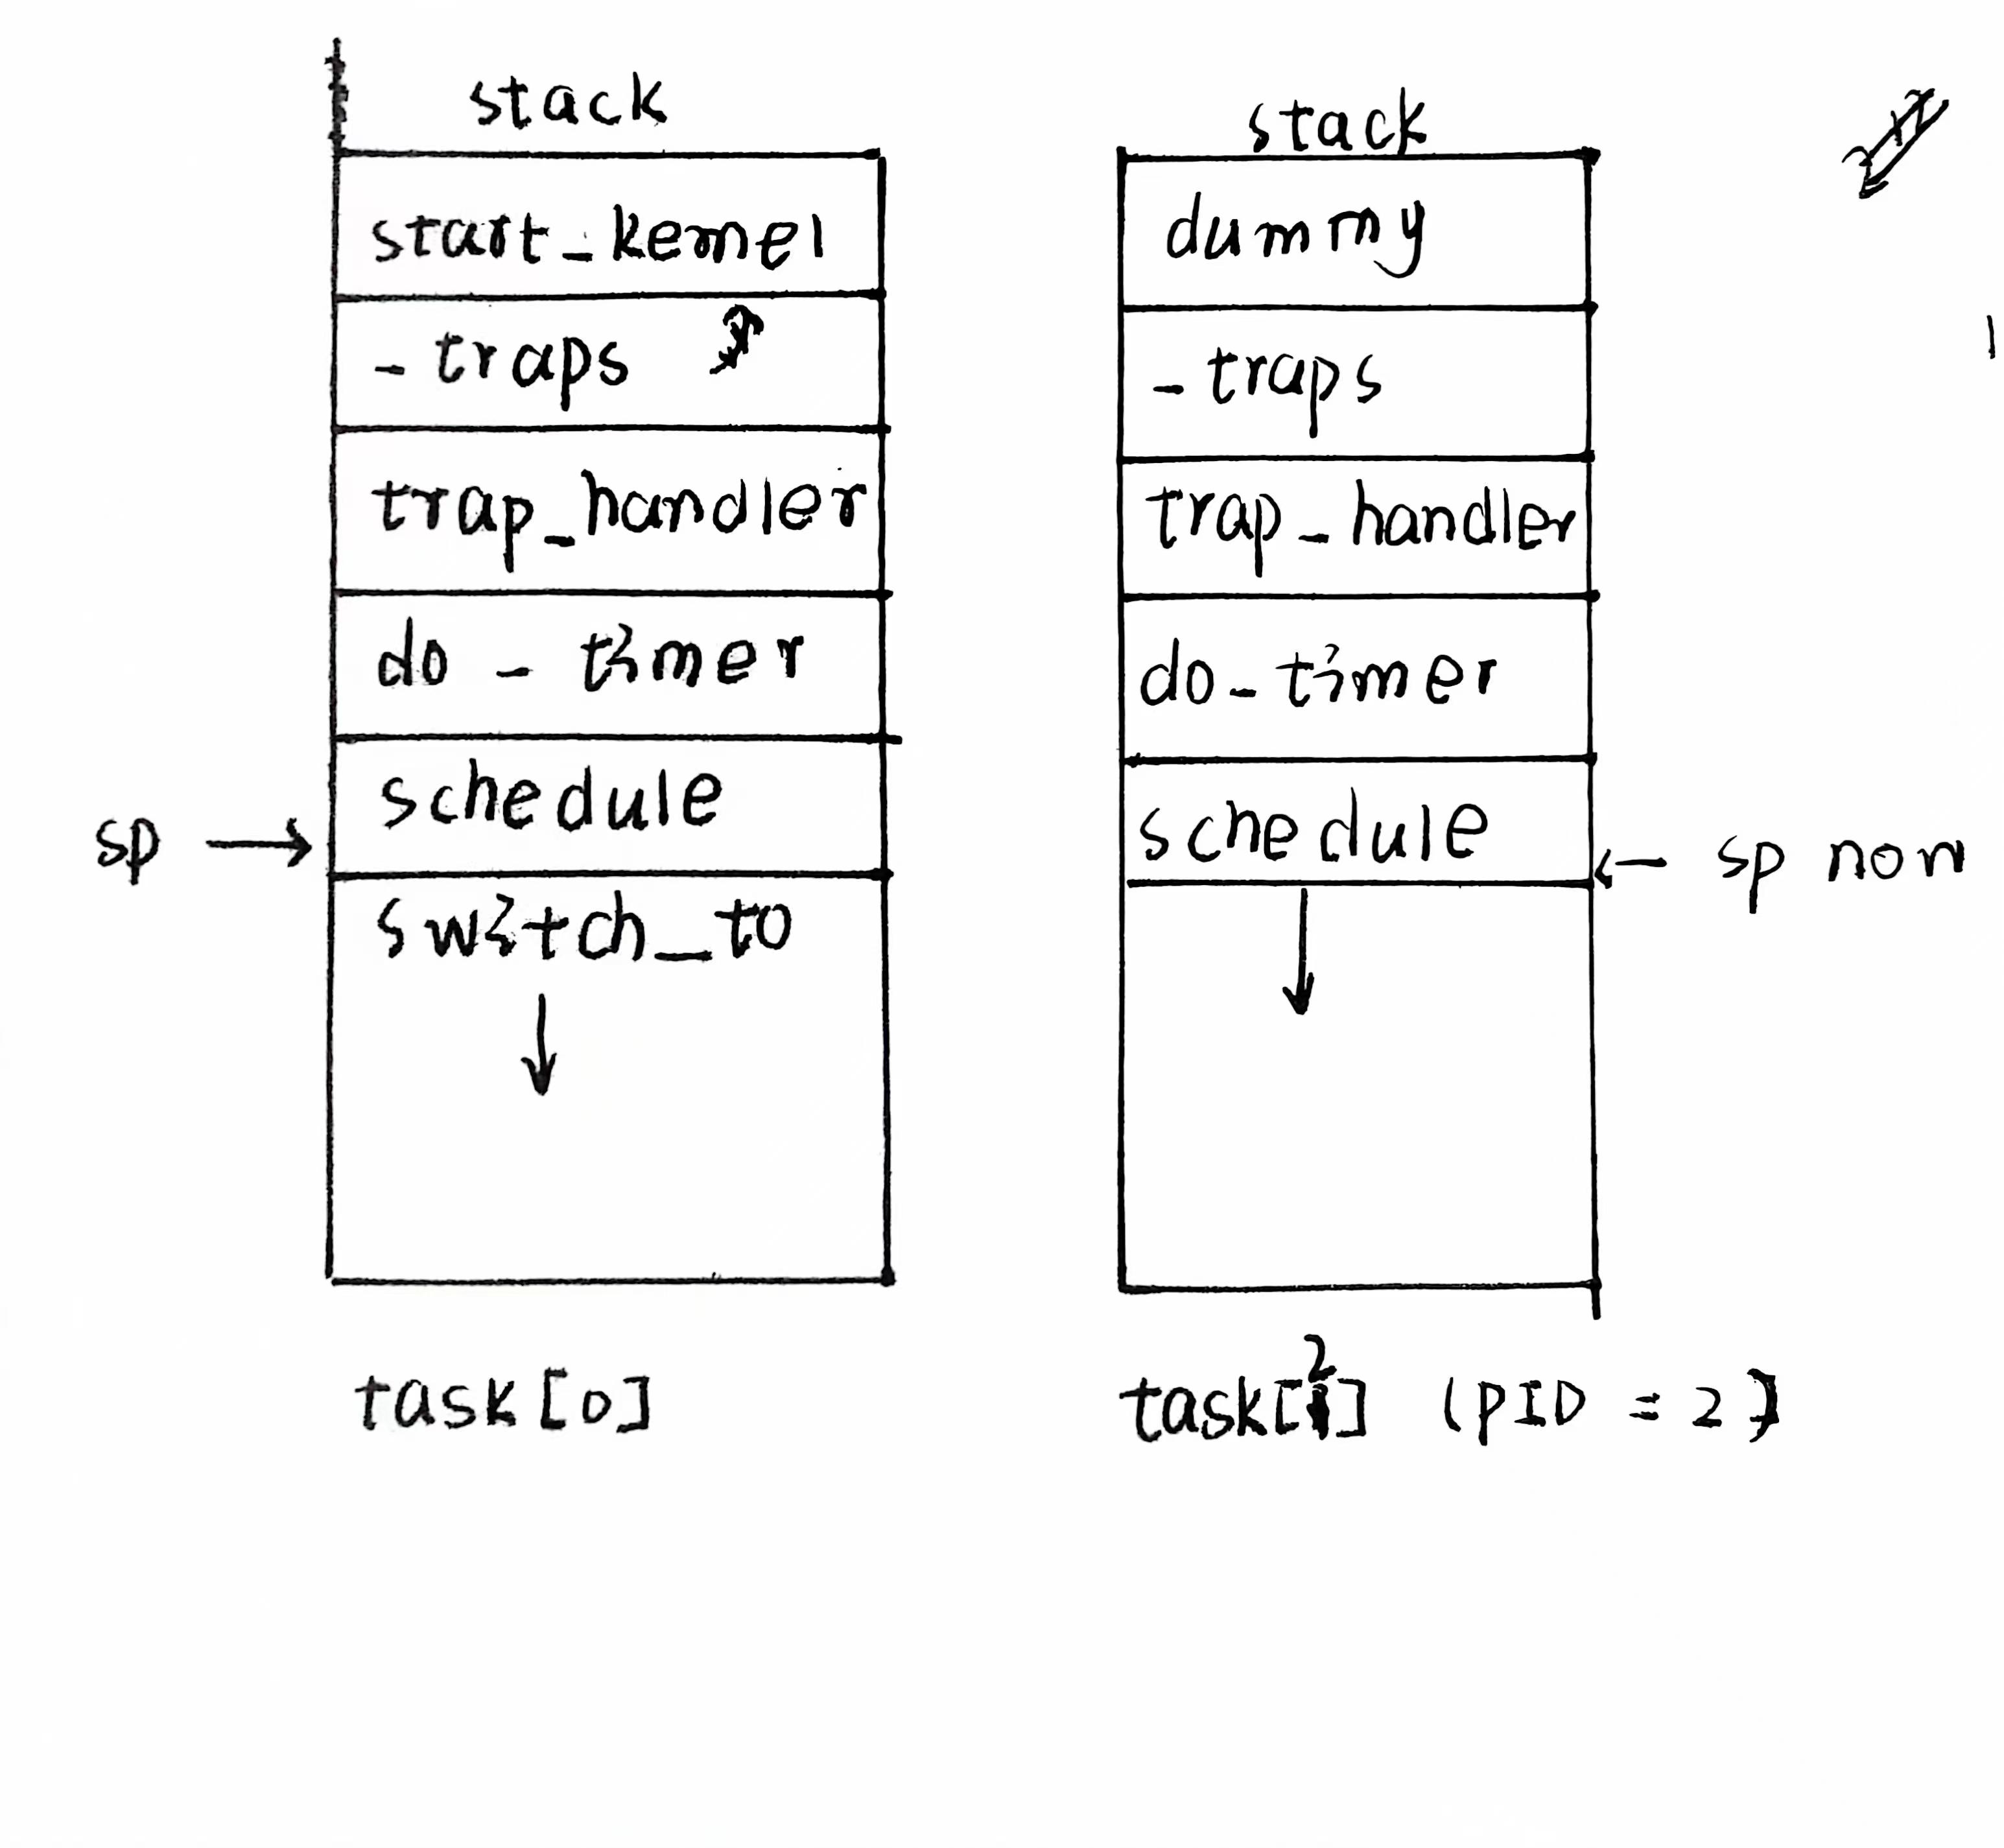 stack
start_kernel
-traps
trap_handler
do - timer
schedule
sp
switch_to
task[0]
stack
dummy
-traps
trap-handler
do-timer
schedule
sp now
task[2] (PID = 2)